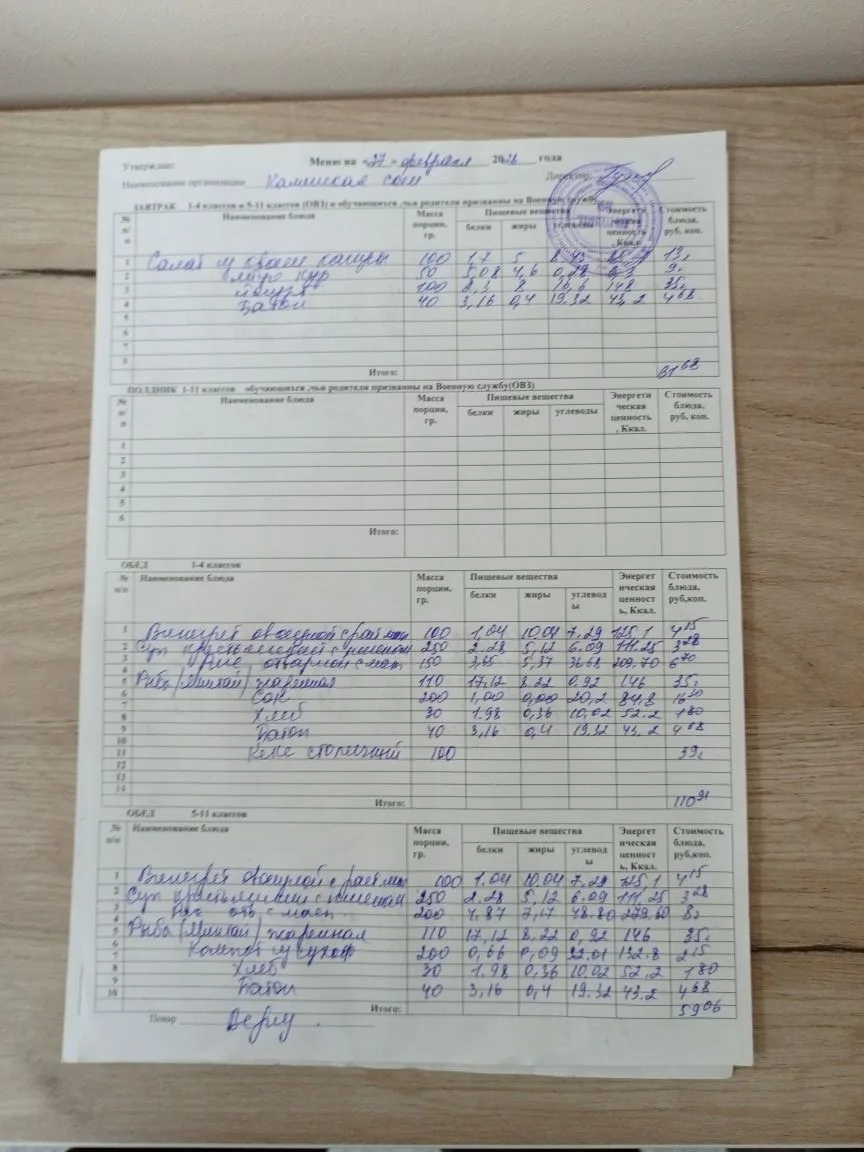 Утверждаю:
Меню на «27» февраля 2026 года
Наименование организации Каменская сош Директор
ЗАВТРАК 1-4 классов и 5-11 классов (ОВЗ) и обучающихся ,чьи родители призванны на Военную службу
№ п/п Наименование блюда Масса порции, гр. Пищевые вещества Энергетическая ценность, Ккал. Стоимость блюда, руб, коп.
белки жиры углеводы
1 Салат из свеж капусты 100 1,7 5 8,45 13,
2 кур 50 5,08 4,6 9,
3 100 8 148 35,
4 Батон 40 3,16 0,4 19.32 43,2 4 68
5
6
7
8
Итого: 61 68
ПОЛДНИК 1-11 классов обучающихся ,чьи родители призванны на Военную службу(ОВЗ)
№ п/п Наименование блюда Масса порции, гр. Пищевые вещества Энергетическая ценность, Ккал. Стоимость блюда, руб, коп.
белки жиры углеводы
1
2
3
4
5
6
Итого:
ОБЕД 1-4 классов
№ п/п Наименование блюда Масса порции, гр. Пищевые вещества Энергетическая ценность, Ккал. Стоимость блюда, руб,коп.
белки жиры углеводы
1 Винегрет овощной с раст мас 100 1,04 10,04 7,29 125,1 4 15
2 Суп крестьянский с пшеном 250 2.28 5,12 6.09 111.25 3 28
3
4 Рис отварной с мас 150 3,65 5,37 36.68 209.70 6 70
5 Рыба (Минтай) жаренная 110 17,12 8.22 0,92 146 35,
6
7 Сок 200 1,00 0,00 20,2 84,8 16 30
8 Хлеб 30 1.98 0,36 10,02 52.2 1 80
9 Батон 40 3,16 0,4 19.32 43,2 4 68
10
11 Кекс столичный 100 39,
12
13
14
Итого: 110 91
ОБЕД 5-11 классов
№ п/п Наименование блюда Масса порции, гр. Пищевые вещества Энергетическая ценность, Ккал. Стоимость блюда, руб,коп.
белки жиры углеводы
1 Винегрет овощной с раст мас 100 1.04 10,04 7,29 125,1 4 15
2 Суп крестьянский с пшеном 250 2.28 5,12 6.09 111,25 3 28
3
4 Рис отв с масл 200 4.87 7,17 48.80 279,60 8,
5 Рыба (Минтай) жаренная 110 17,12 8,22 0,92 146 35,
6
7 Компот из сухоф 200 0,66 0,09 32.01 132.8 2 15
8 Хлеб 30 1.98 0,36 10.02 52,2 1 80
9
10 Батон 40 3,16 0,4 19.32 43.2 4 68
Итого: 59 06
Повар